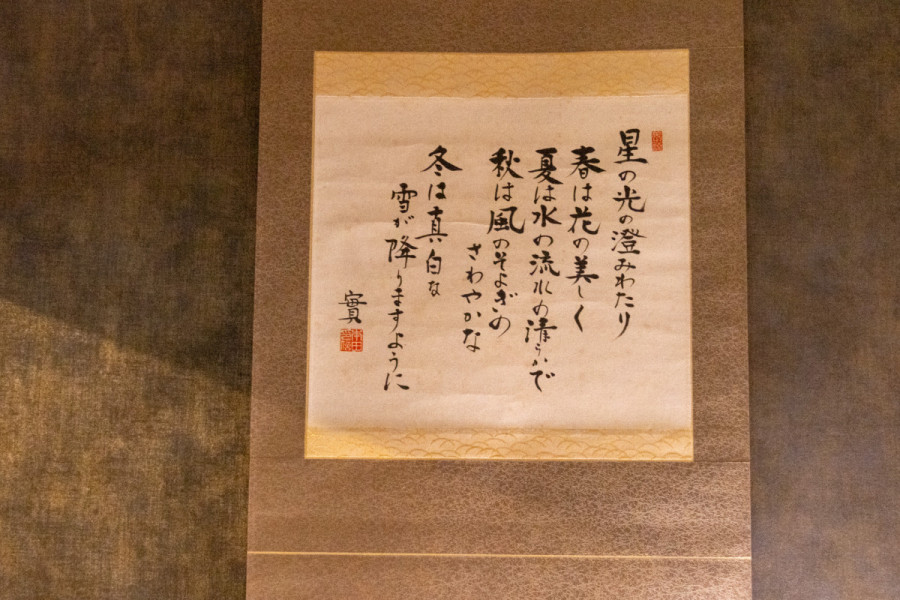 星の光の澄みわたり
春は花の美しく
夏は水の流水の清らかで
秋は風のそよぎの
さわやかな
冬は真白な
雪が降りますように
實